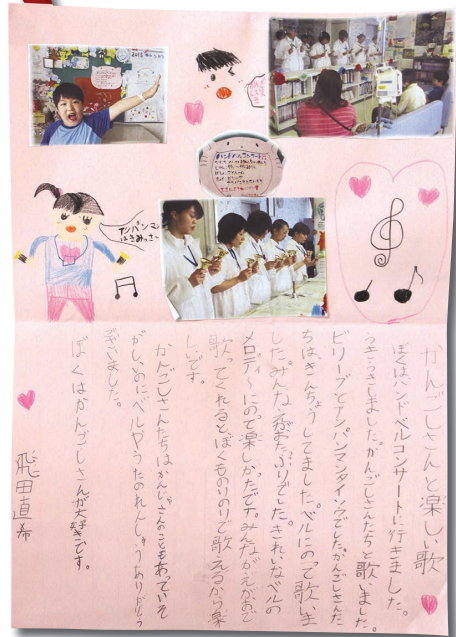 アンパンマン
はきみっさ～
かんごしさんと楽しい歌
ぼくはハンドベルコンサートに行きました。
うきうきしました。かんごしさんたちと歌いました。
ビリーブとアンパンマンタイソウでした。かんごしさんた
ちはきんちょうしてました。ベルにのって歌いま
した。みんなえがおたっぷりでした。きれいなベルの
メロディ～にのって楽しかたです。みんながえがおで
歌ってくれるとぼくものりのりで歌えるから楽
しいです。
かんごしさんたちはかんじゃさんのこともあっていそ
がしいのにベルやうたのれんしゅうありがとう
ございました。
ぼくはかんごしさんが大好きです。
飛田直希